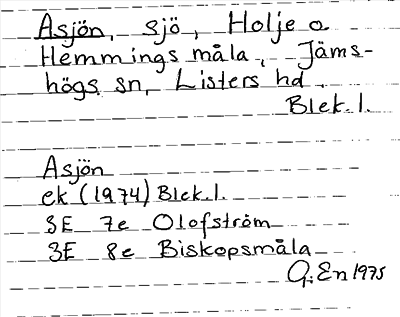 Asjön, sjö, Holje o
Hemmings måla, Jäms-
högs sn, Listers hd.
Blek. l.
Asjön
ek (1974) Blek. l.
3E 7e Olofström
3E 8e Biskopsmåla
G. En 1975